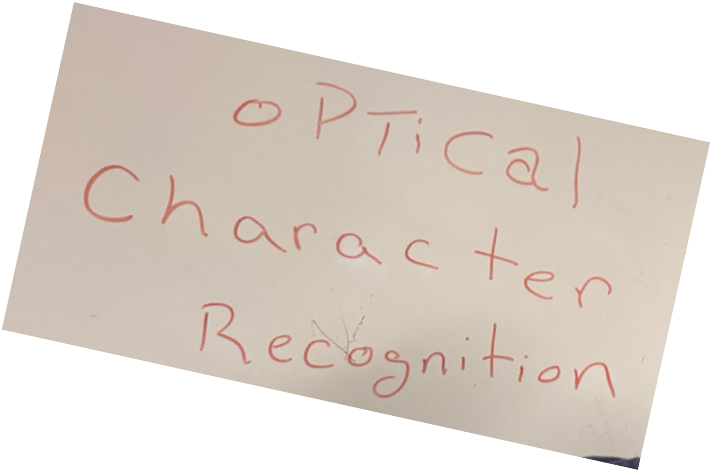 oPTical
Character
Recognition